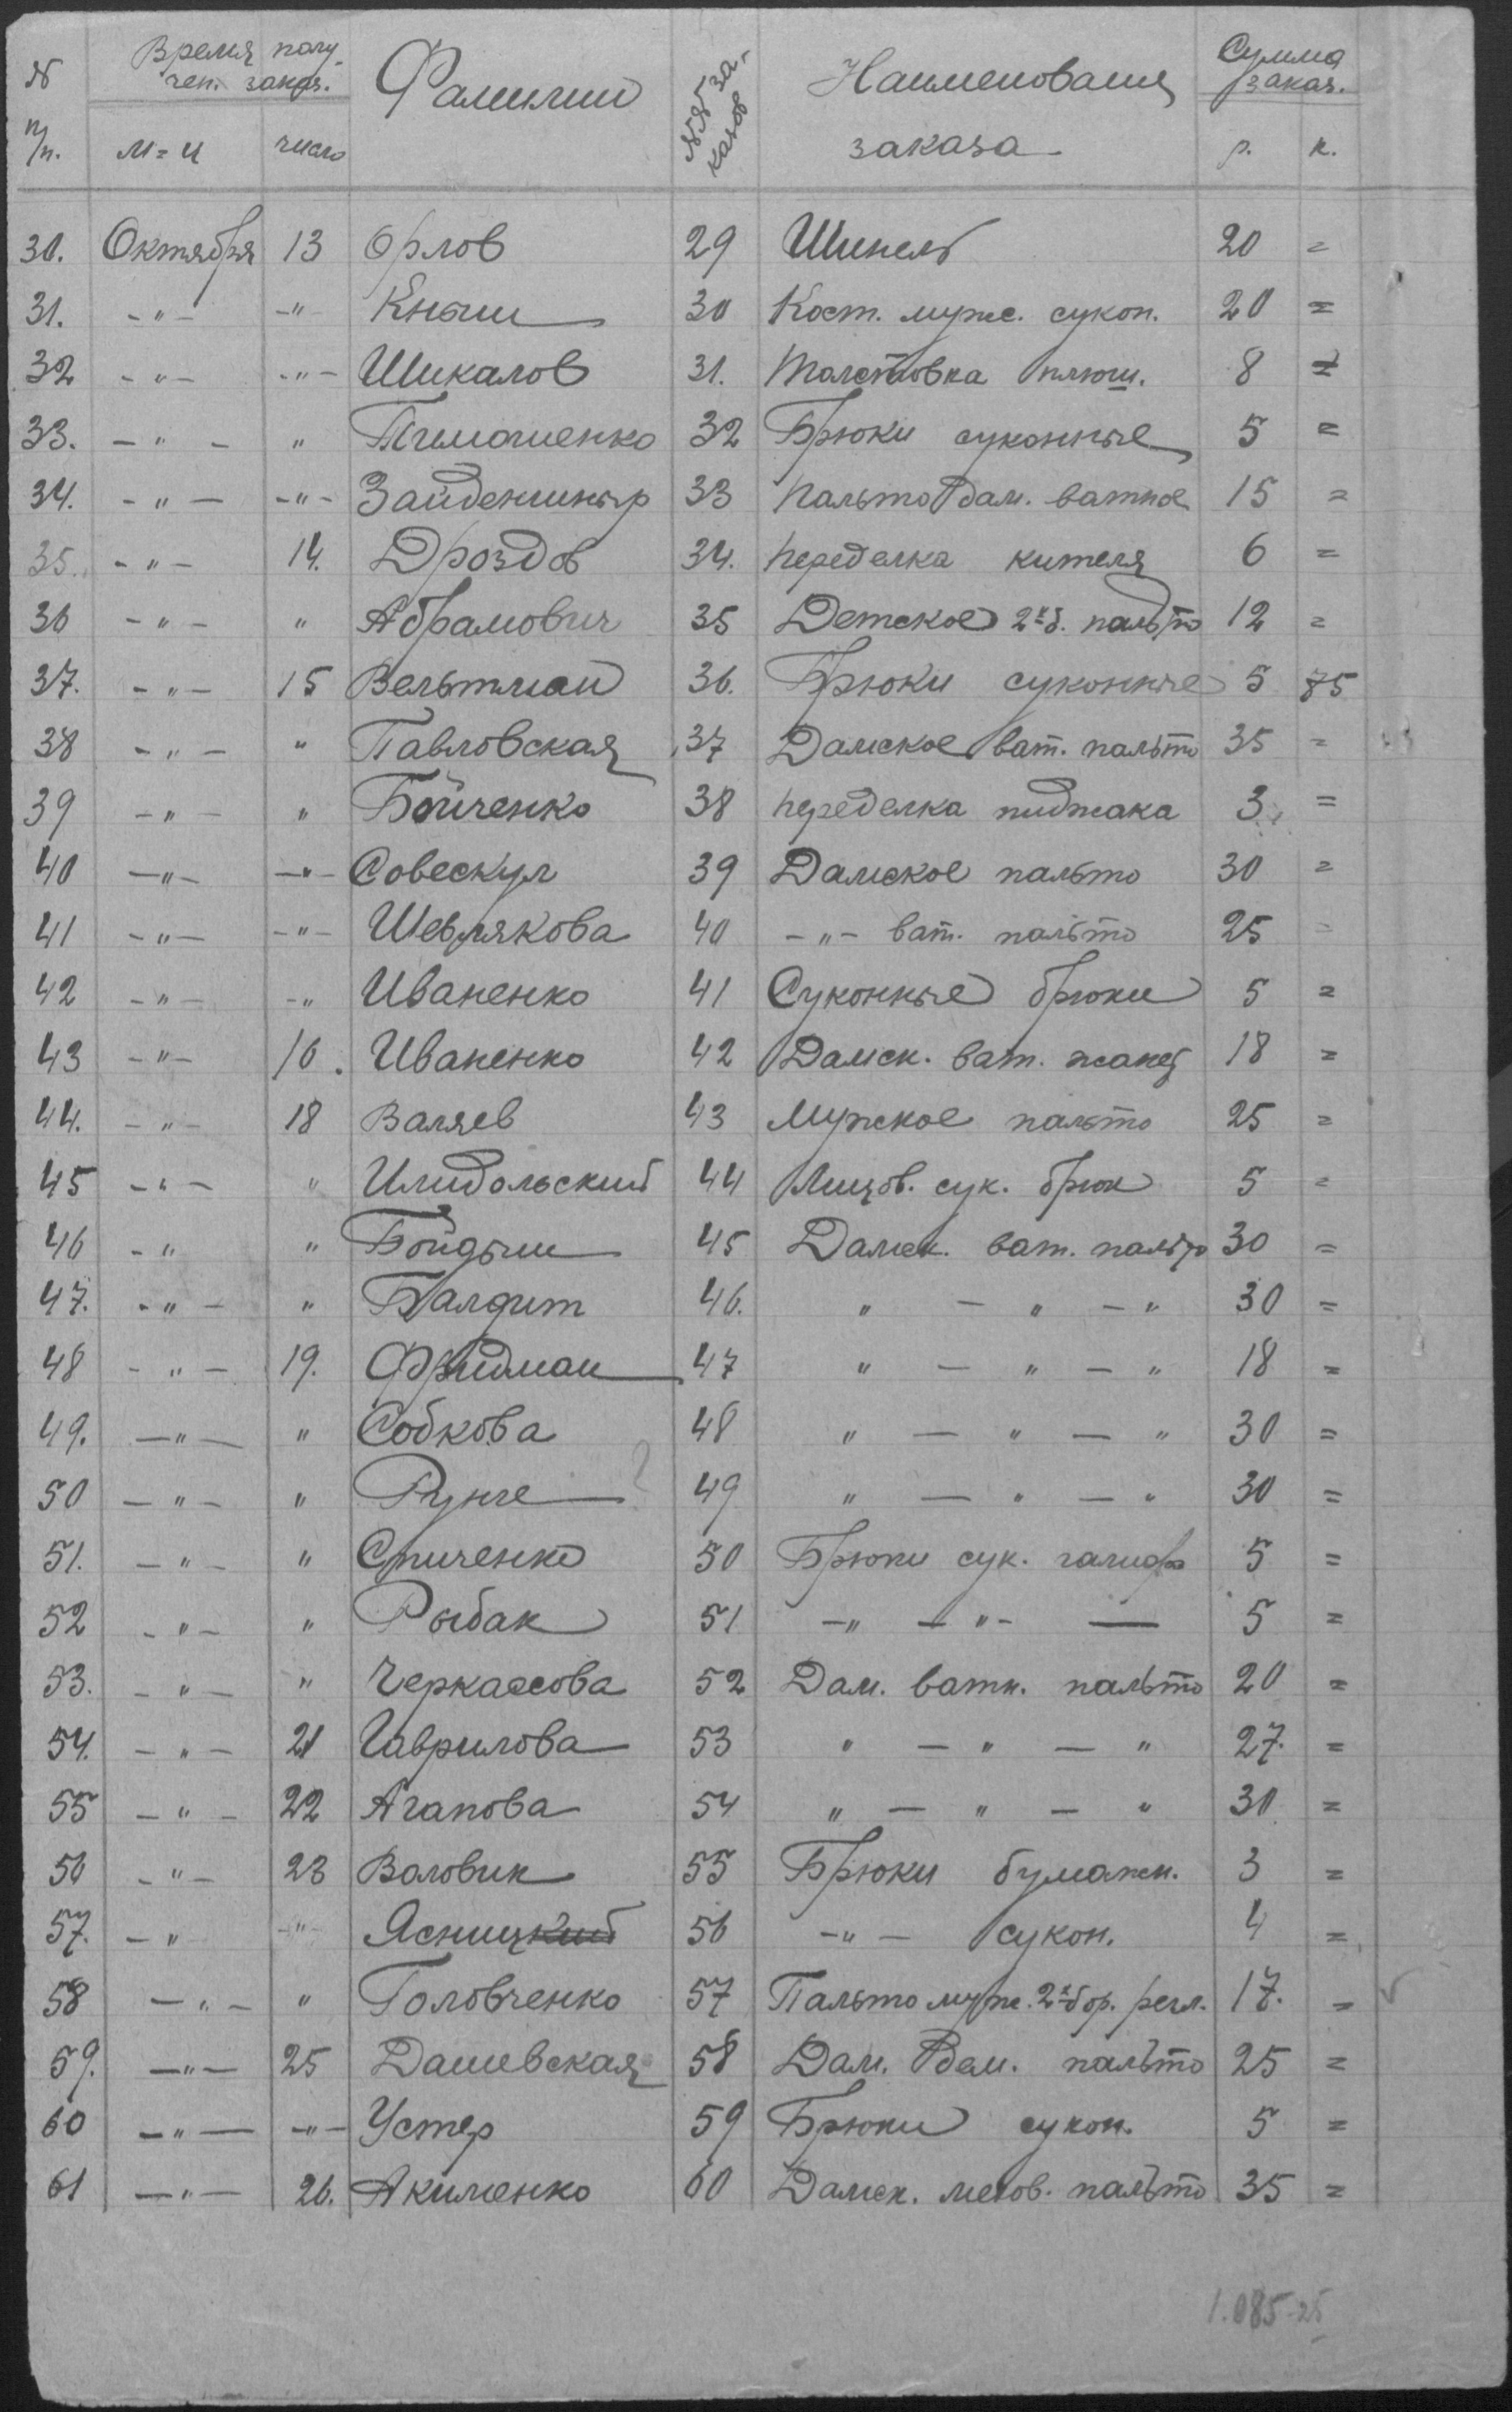 № п/п. Время получен. заказ. Фамилии №№ заказов Наименования заказа Сумма заказ.
м-ц число р. к.
30. Октября 13 Орлов 29 Шинель 20 =
31. -"- -"- Кныш 30 Кост. мужс. сукон. 20 =
32 -"- -"- Шикалов 31. Толстовка плюш. 8 =
33. -"- " Тимошенко 32 Брюки суконные 5 =
34. -"- -"- Зайденшныр 33 Пальто дам. ватное 15 =
35. -"- 14. Дроздов 34. переделка кителя 6 =
36 -"- " Абрамович 35 Детское 2хб. пальто 12 =
37. -"- 15 Вельтман 36. Брюки суконные 5 75
38 -"- " Павловская 37 Дамское ват. пальто 35 =
39 -"- " Бойченко 38 переделка пиджака 3 =
40 -"- -"- Совескул 39 Дамское пальто 30 =
41 -"- -"- Шевлякова 40 -"- ват. пальто 25 =
42 -"- -" Иваненко 41 Суконные брюки 5 =
43 -"- 16. Иваненко 42 Дамск. ват. жакет 18 =
44. -"- 18 Валяев 43 Мужское пальто 25 =
45 -"- " Илидольский 44 Лицов. сук. брюк 5 =
46 -" " Бойдыш 45 Дамск. ват. пальто 30 =
47. -"- " Балдит 46. " - " - " 30 =
48 -"- 19. Фридман 47 " - " - " 18 =
49. -"- " Собкова 48 " - " - " 30 =
50 -"- " Рунге ? 49 " - " - " 30 =
51. -"- " Спиченко 50 Брюки сук. галиф 5 =
52 -"- " Рыбак 51 -" -"- — 5 =
53. -"- " Черкассова 52 Дам. ватн. пальто 20 =
54. -"- 21 Гаврилова 53 " - " - " 27. =
55 -"- 22 Агапова 54 " - " - " 30 =
56 -"- 23 Воловик 55 Брюки бумажн. 3 =
57. -" -"- Ясницкий 56 -"- сукон. 4 =
58 -"- " Головченко 57 Пальто мужс. 2хбор. регл. 17. =
59. -"- 25 Дашевская 58 Дам. дем. пальто 25 =
60 -"- -"- Устер 59 Брюки сукон. 5 =
61 -"- 26. Акименко 60 Дамск. мехов. пальто 35 =
1.085-25